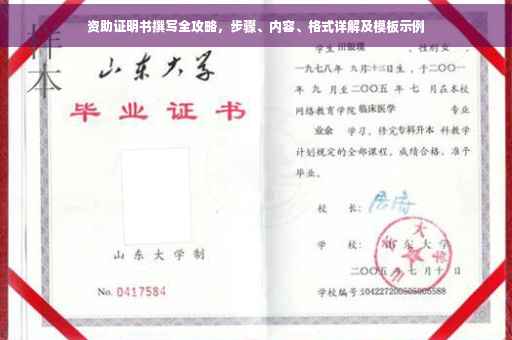 资助证明书撰写全攻略，步骤、内容、格式详解及模板示例
样本
山东大学
毕业证书
山东大学制
No. 0417584
学生
性别女，
一九七八年九月十二日生，于二〇〇一
年九月至二〇〇五年七月在本校
网络教育学院临床医学 专业
业余 学习，修完专科升本科教学
计划规定的全部课程，成绩合格，准予
毕业。
校 长：
学 校：山东大学
二〇〇五年七月十日
学校编号：104227200505005588